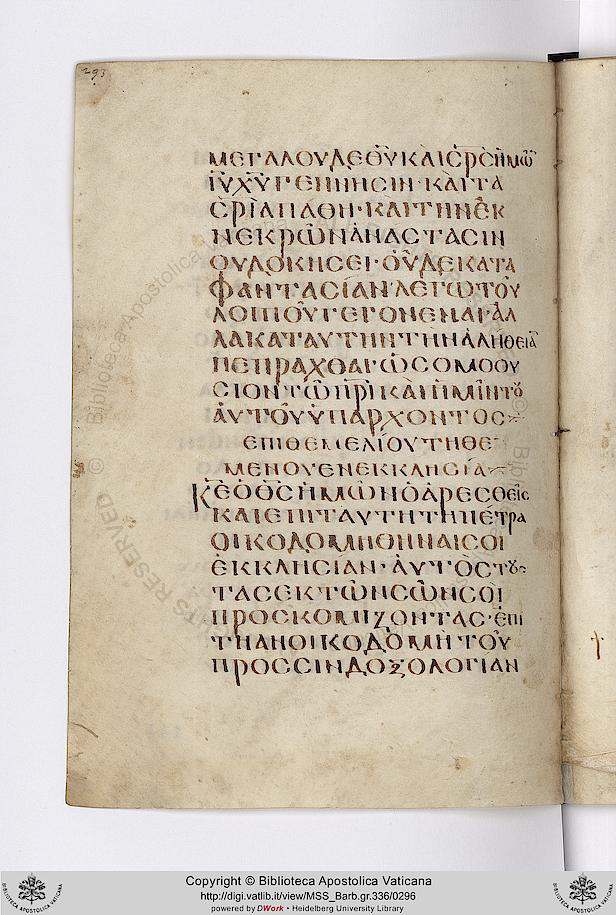 293
ΜΕΓΑΛΟΥΔΕΘ̅Υ̅ΚΑΙΣ̅Ρ̅Σ̅ΗΜΩ̅
Ι̅Υ̅Χ̅Υ̅ΓΕΝΝΗΣΙΝ·ΚΑΙΤΑ
Σ̅Ρ̅Ι̅ΑΠΑΘΗ·ΚΑΙΤΗΝΕΚ
ΝΕΚΡΩΝΑΝΑΣΤΑΣΙΝ
ΟΥΔΟΚΗΣΕΙ·ΟΥΔΕΚΑΤΑ
ΦΑΝΤΑΣΙΑΝΛΕΓΩΤΟΥ
ΛΟΙΠΟΥΓΕΓΟΝΕΝΑΙ·ΑΛ
ΛΑΚΑΤΑΥΤΗΝΤΗΝΑΛΗΘΕΙΑ̅
ΠΕΠΡΑΧΘΑΙ·ΩΣΟΜΟΟΥ
ΣΙΟΝΤΩΠ̅Ρ̅Ι̅ΚΑΙΗΜΙΝΤΟΥ
ΑΥΤΟΥΫΠΑΡΧΟΝΤΟΣ
ΕΠΙΘΕΜΕΛΙΟΥΤΗΘΕ
ΜΕΝΟΥΕΝΕΚΚΛΗΣΙΑ
Κ̅Ε̅Ο̅Θ̅Σ̅ΗΜΩΝΟΑΡΕΣΘΕΙΣ
ΚΑΙΕΠΙΤΑΥΤΗΤΗΠΕΤΡΑ
ΟΙΚΟΔΟΜΗΘΗΝΑΙΣΟΙ
ΕΚΚΛΗΣΙΑΝ·ΑΥΤΟΣΤΟΥ
ΤΑΣΕΚΤΩΝΣΩΝΣΟΙ
ΠΡΟΣΚΟΜΙΖΟΝΤΑΣ·ΕΠΙ
ΤΗΑΝΟΙΚΟΔΟΜΗΤΟΥ
ΠΡΟΣΣΙΝΔΟΞΟΛΟΓΙΑΝ
Copyright © Biblioteca Apostolica Vaticana
http://digi.vatlib.it/view/MSS_Barb.gr.336/0296
powered by DWork • Heidelberg University Library